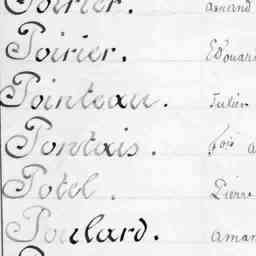 Poirier. Armand
Poirier. Edouard
Pointeau. Julien
Pontais. fois
Potel. Pierre
Poulard. Aman